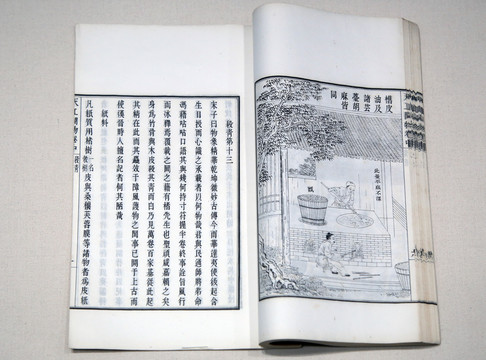 皮
油及
諸芸
薹胡
麻皆
同
甑
殺青第十三
宋子曰物象精華乾坤微妙古傳今而華達夷使後起含
生目授而心識之承載者以何物哉君與民通師將弟命
馮藉呫呫口語其與幾何持寸符握半卷終事詮旨風行
而冰釋焉覆載之間之藉有楮先生也聖頑咸嘉賴之矣
身為竹骨與木皮殺其青而白乃見萬卷百家基從此起
其精在此而其粗效于障風護物之間事已開于上古而
使漢晉時人擅名記者何其陋哉
紙料
凡紙質用楮樹一名榖樹皮與桑穰芙蓉膜等諸物者為皮紙
天工開物卷中 殺青